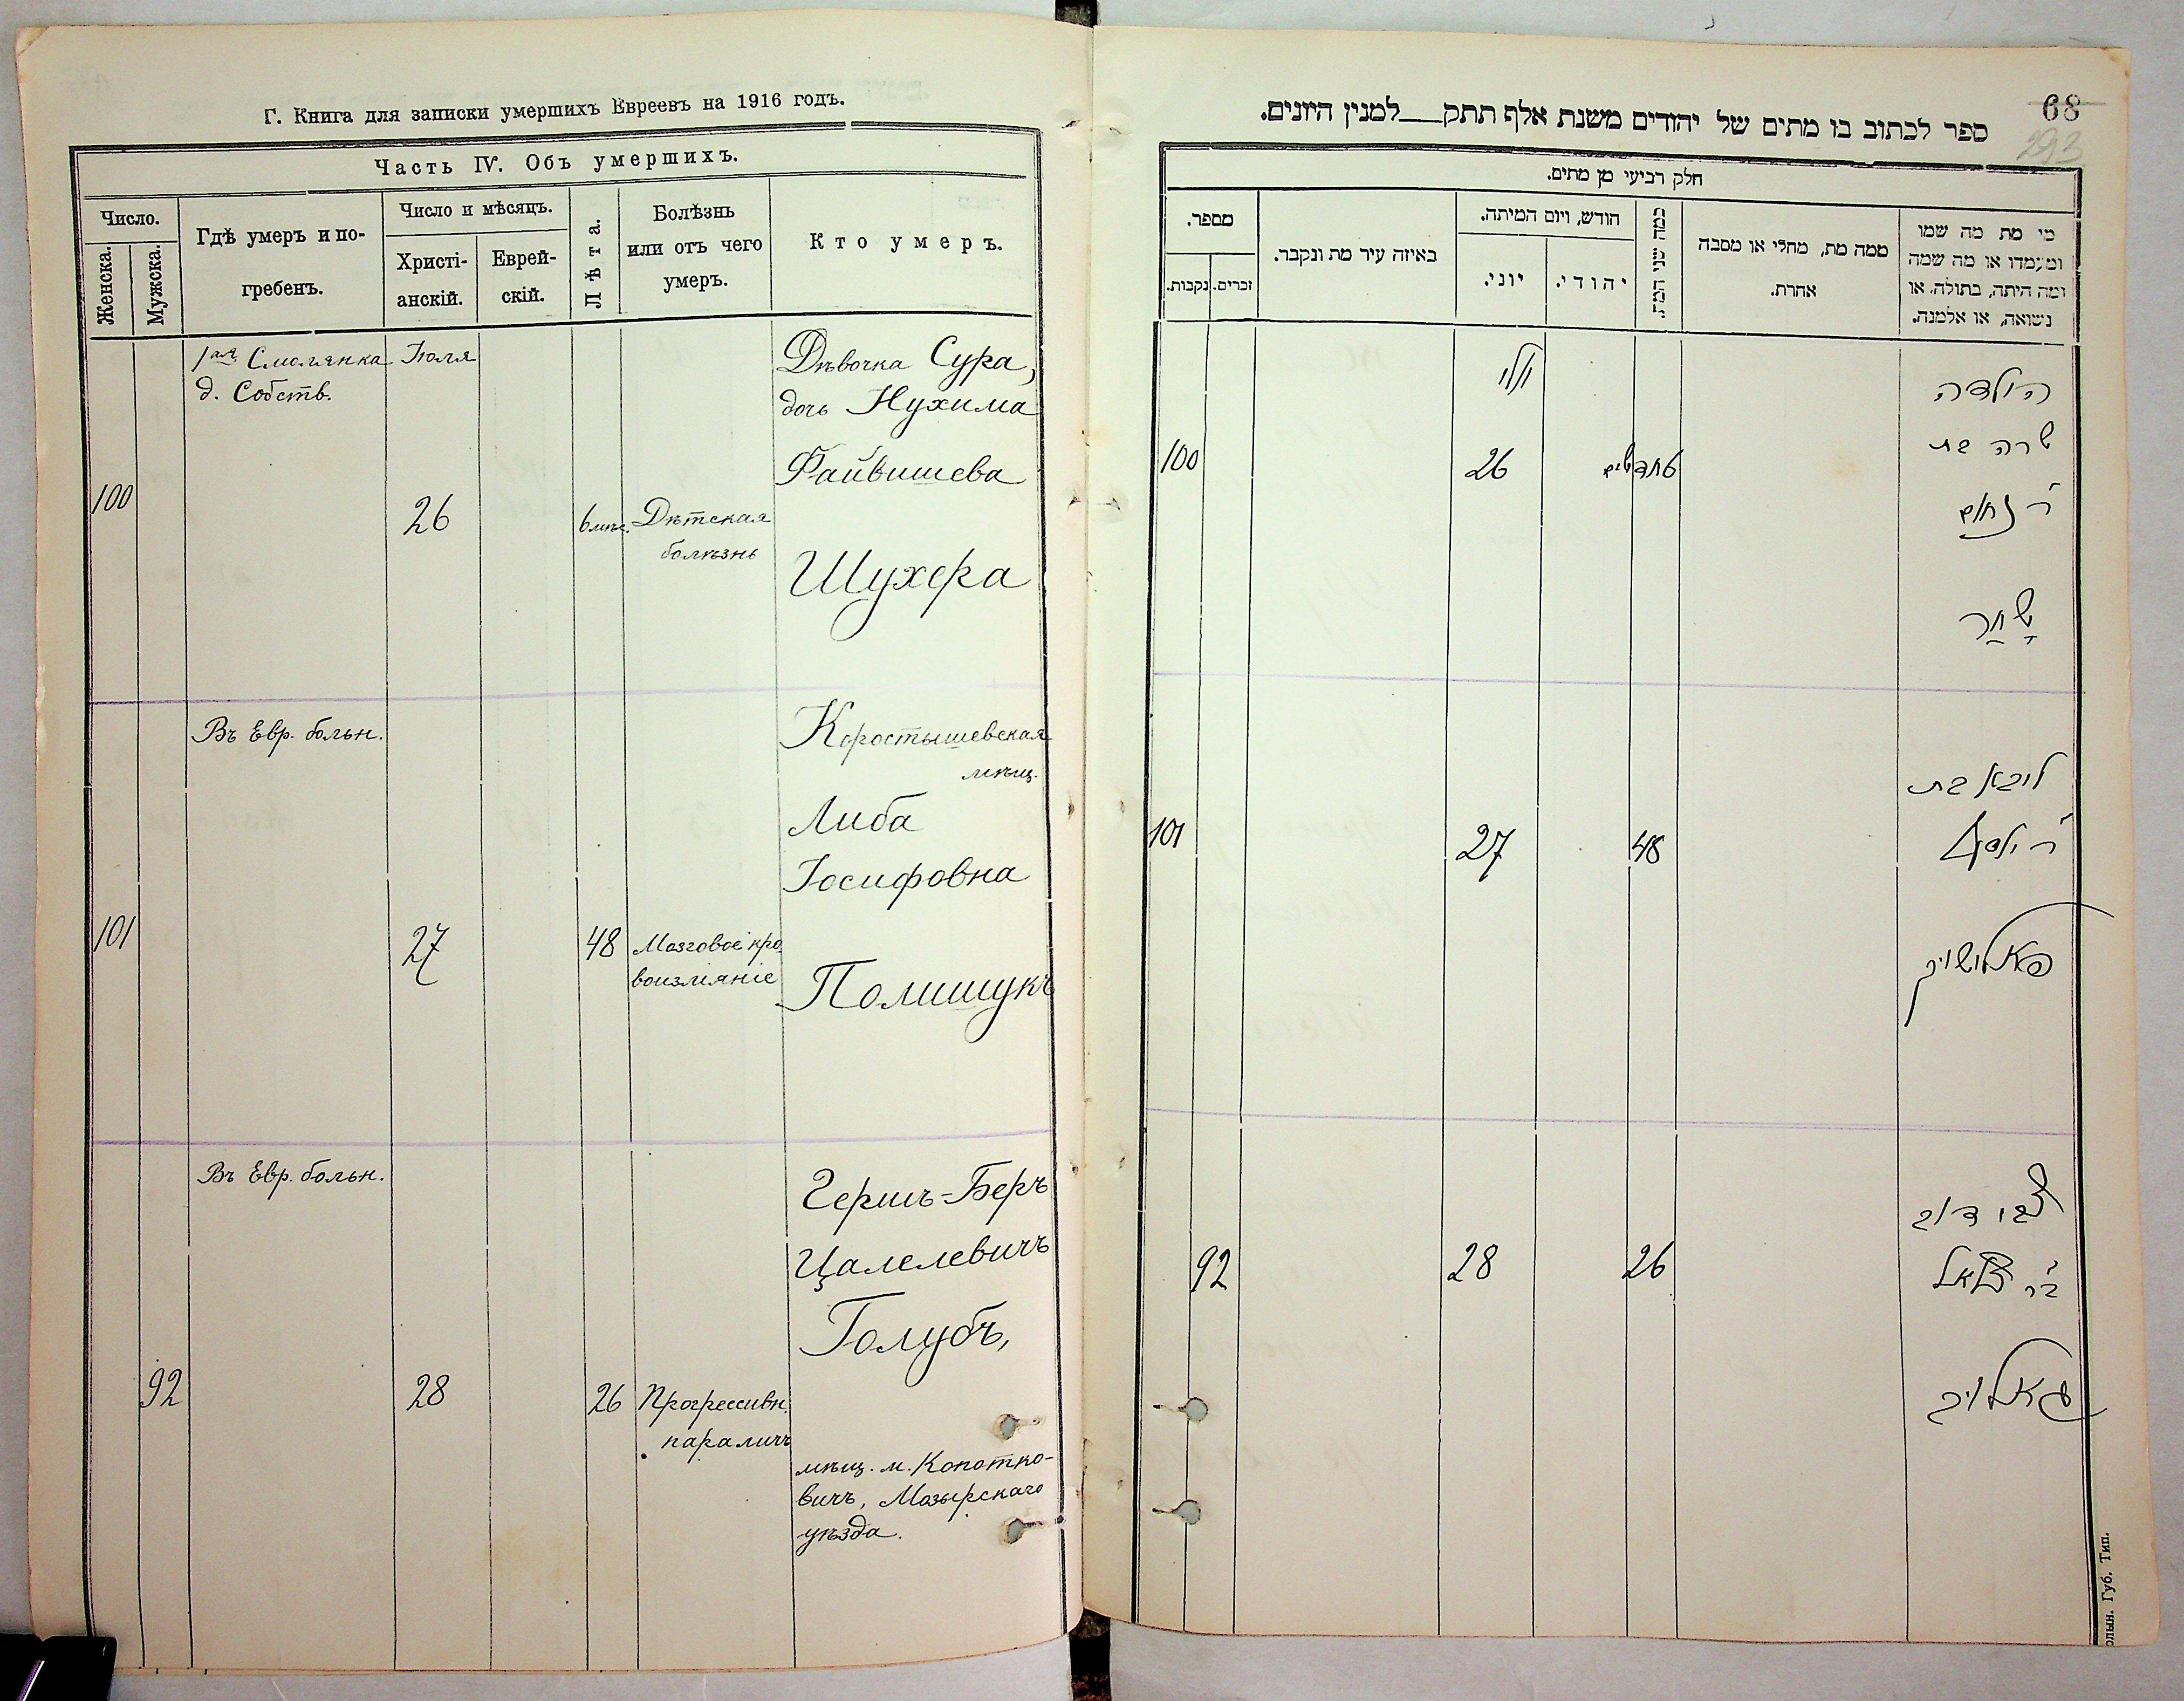 Г. Книга для записки умершихъ Евреевъ на 1916 годъ.
Часть IV. Объ умершихъ.
Число.
Женска.
Мужска.
Гдѣ умеръ и по-
гребенъ.
Число и мѣсяцъ.
Христі-
анскій.
Еврей-
скій.
Лѣта.
Болѣзнь
или отъ чего
умеръ.
Кто умеръ.
1ая Смолянка
д. Собств.
Іюля
100
26
6 мѣс.
Дѣтская
болѣзнь
Дѣвочка Сура,
дочь Нухима
Файвишева
Шухера
Въ Евр. больн.
101
27
48
Мозговое кро-
воизліяніе
Коростышевская
мѣщ.
Либа
Іосифовна
Полищукъ
Въ Евр. больн.
92
28
26
Прогрессивн.
параличъ
Гершъ-Беръ
Цалелевичъ
Голубъ,
мѣщ. м. Копатко-
вичъ, Мозырскаго
уѣзда.
68
293
ספר לכתוב בו מתים של יהודים משנת אלף תתק__למנין היונים.
חלק רביעי מן מתים.
מספר.
זכרים.
נקבות.
באיזה עיר מת ונקבר.
חודש, ויום המיתה.
יוני.
יהודי.
כמה שני המת.
ממה מת, מחלי או מסבה
אחרת.
מי מת מה שמו
ומעמדו או מה שמה
ומה היתה, בתולה, או
נשואה, או אלמנה.
יולי
100
26
הילדה
שרה בת
ר' נחום
שחר
101
27
48
ליבא בת
ר' יוסף
פאלישוק
92
28
26
צבי דוב
בר' בצלאל
גאלוב
олын. Губ. Тип.